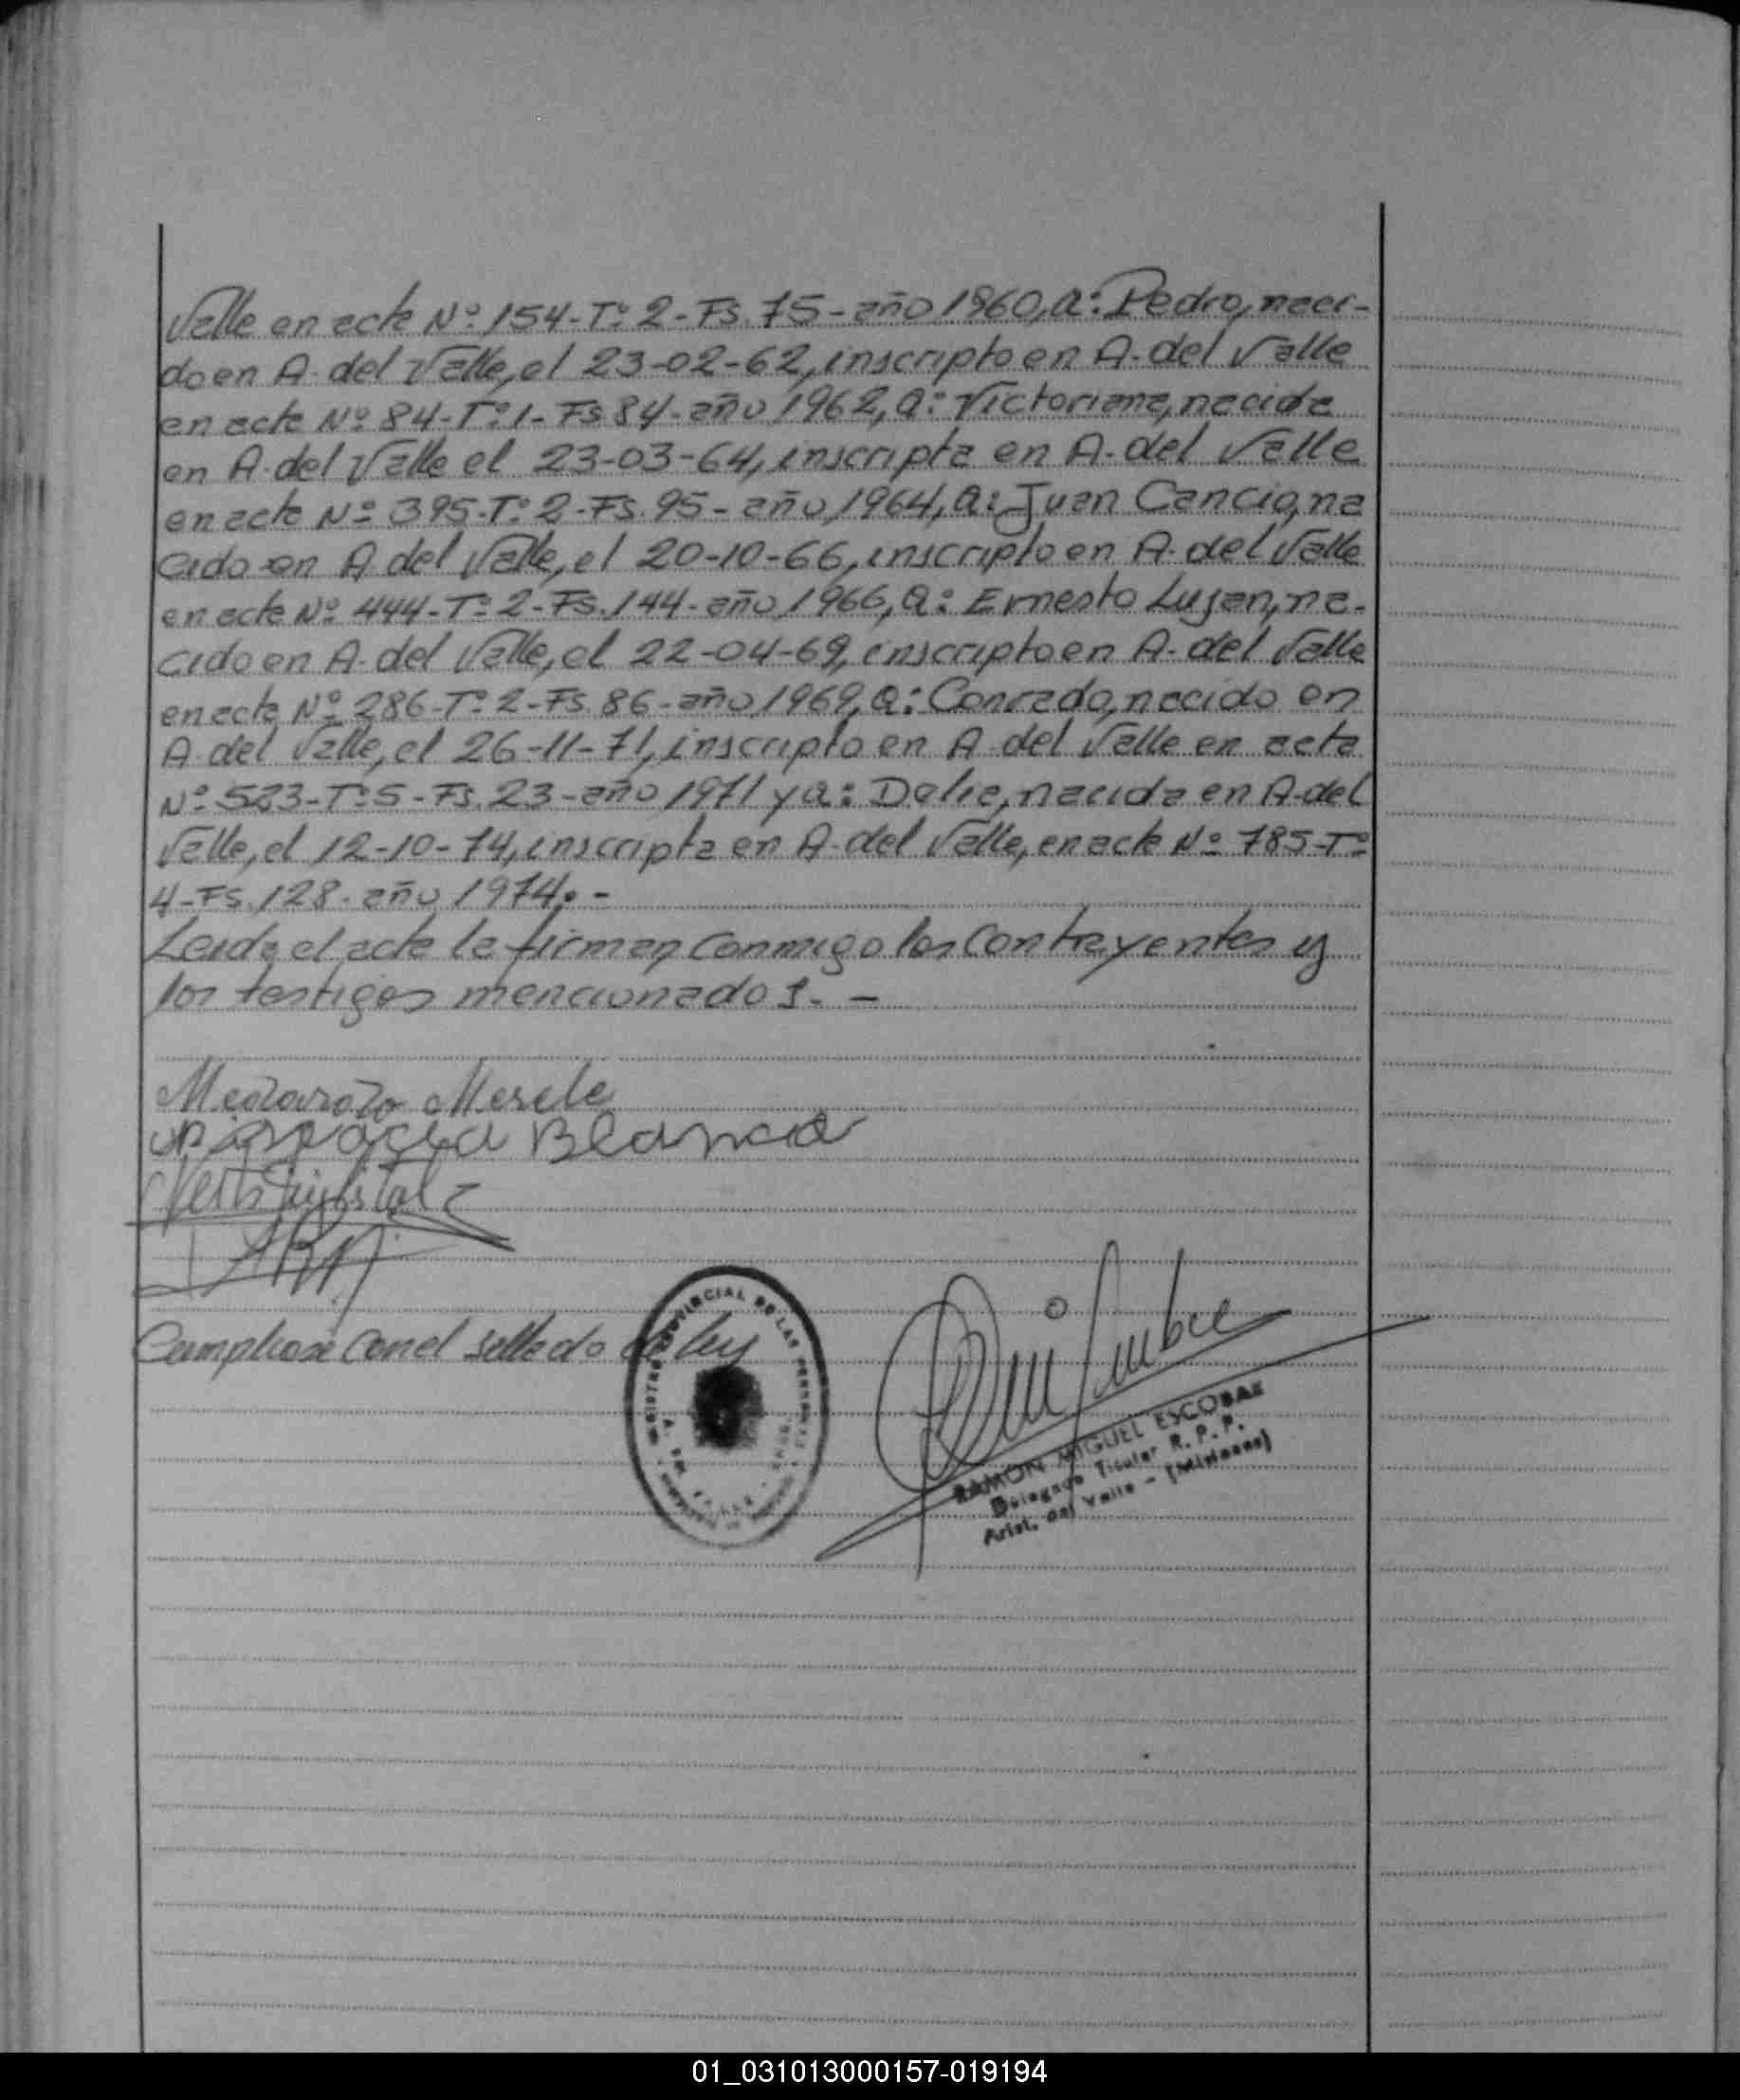 Valle en acta Nº 154-Tº 2-Fs. 75-año 1960, a: Pedro, naci-
do en A. del Valle, el 23-02-62, inscripto en A. del Valle
en acta Nº 84-Tº 1-Fs 84-año 1962, a: Victoriana, nacida
en A. del Valle el 23-03-64, inscripta en A. del Valle
en acta Nº 395-Tº 2-Fs. 95-año 1964, a: Juan Cancio, na
cido en A del Valle, el 20-10-66, inscripto en A. del Valle
en acta Nº 444-Tº 2-Fs. 144-año 1966, a: Ernesto Lujan, na-
cido en A. del Valle, el 22-04-69, inscripto en A. del Valle
en acta Nº 286-Tº 2-Fs. 86-año 1969, a: Conrado, nacido en
A. del Valle, el 26-11-71, inscripto en A. del Valle en acta
Nº 523-Tº 5-Fs. 23-año 1971 y a: Delia, nacida en A. del
Valle, el 12-10-74, inscripta en A. del Valle, en acta Nº 785-Tº
4-Fs. 128. año 1974.-
Leida el acta la firman conmigo los contrayentes y
los testigos mencionados.-
Blanca
Cumpliose con el sellado de ley
PROVINCIAL DE LAS
RAMON MIGUEL ESCOBAR
Delegado Titular R. P. P.
Arist. del Valle - (Misiones)
01_031013000157-019194